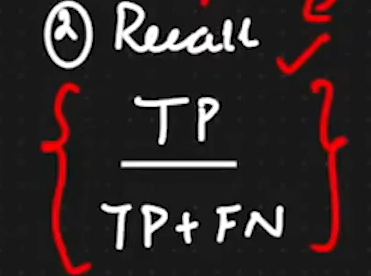 ② Recall
TP
TP+FN